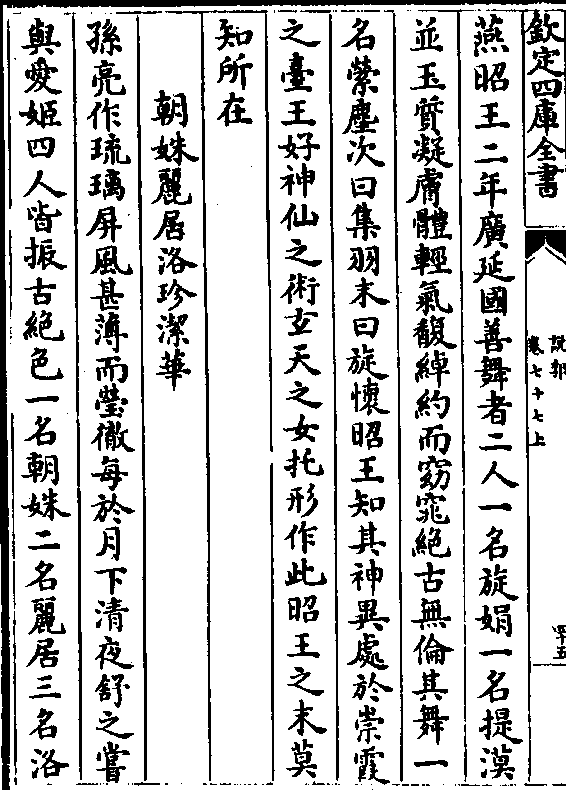 欽定四庫全書
說郛
卷七十七上
四十五
燕昭王二年廣延國善舞者二人一名旋娟一名提漠
並玉質凝膚體輕氣馥綽約而窈窕絕古無倫其舞一
名縈塵次曰集羽末曰旋懷昭王知其神異處於崇霞
之臺王好神仙之術𤣥天之女托形作此昭王之末莫
知所在
朝姝麗居洛珍潔華
孫亮作琉璃屏風甚薄而瑩徹每於月下清夜舒之嘗
與愛姬四人皆振古絕色一名朝姝二名麗居三名洛